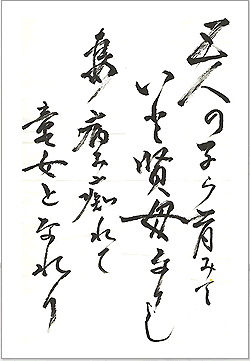 五人の子ら育みて
いと賢母なりし
妻病み痴れて
童女となれり